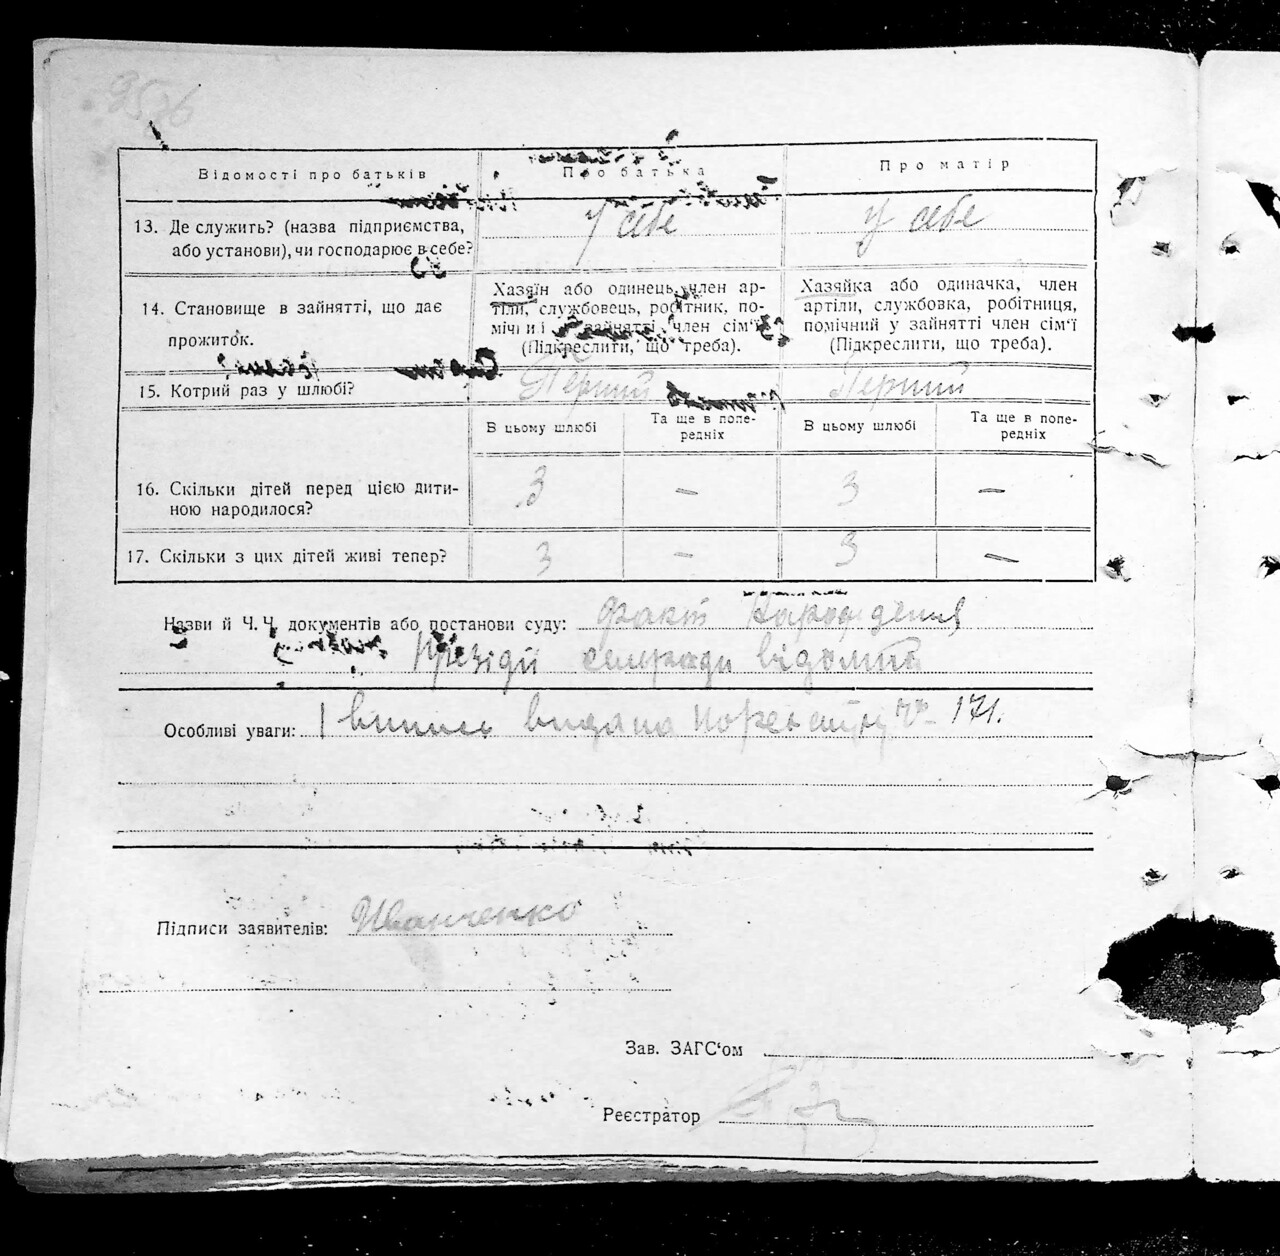 Відомості про батьків
Про батька
Про матір
13. Де служить? (назва підприємства,
або установи), чи господарює в себе?
У себе
У себе
14. Становище в зайнятті, що дає
прожиток.
Хазяїн або одинець, член ар-
тіли, службовець, робітник, по-
мічний у зайнятті член сім'ї
(Підкреслити, що треба).
Хазяйка або одиначка, член
артіли, службовка, робітниця,
помічний у зайнятті член сім'ї
(Підкреслити, що треба).
15. Котрий раз у шлюбі?
Перший
Перший
В цьому шлюбі
Та ще в попе-
редніх
В цьому шлюбі
Та ще в попе-
редніх
16. Скільки дітей перед цією дити-
ною народилося?
3
—
3
—
17. Скільки з цих дітей живі тепер?
3
—
3
—
Назви й Ч. Ч. документів або постанови суду: Факт народження
Президії сельради відомий
Особливі уваги: Випись видана 171.
Підписи заявителів: Иванченко
Зав. ЗАГС'ом
Реєстратор